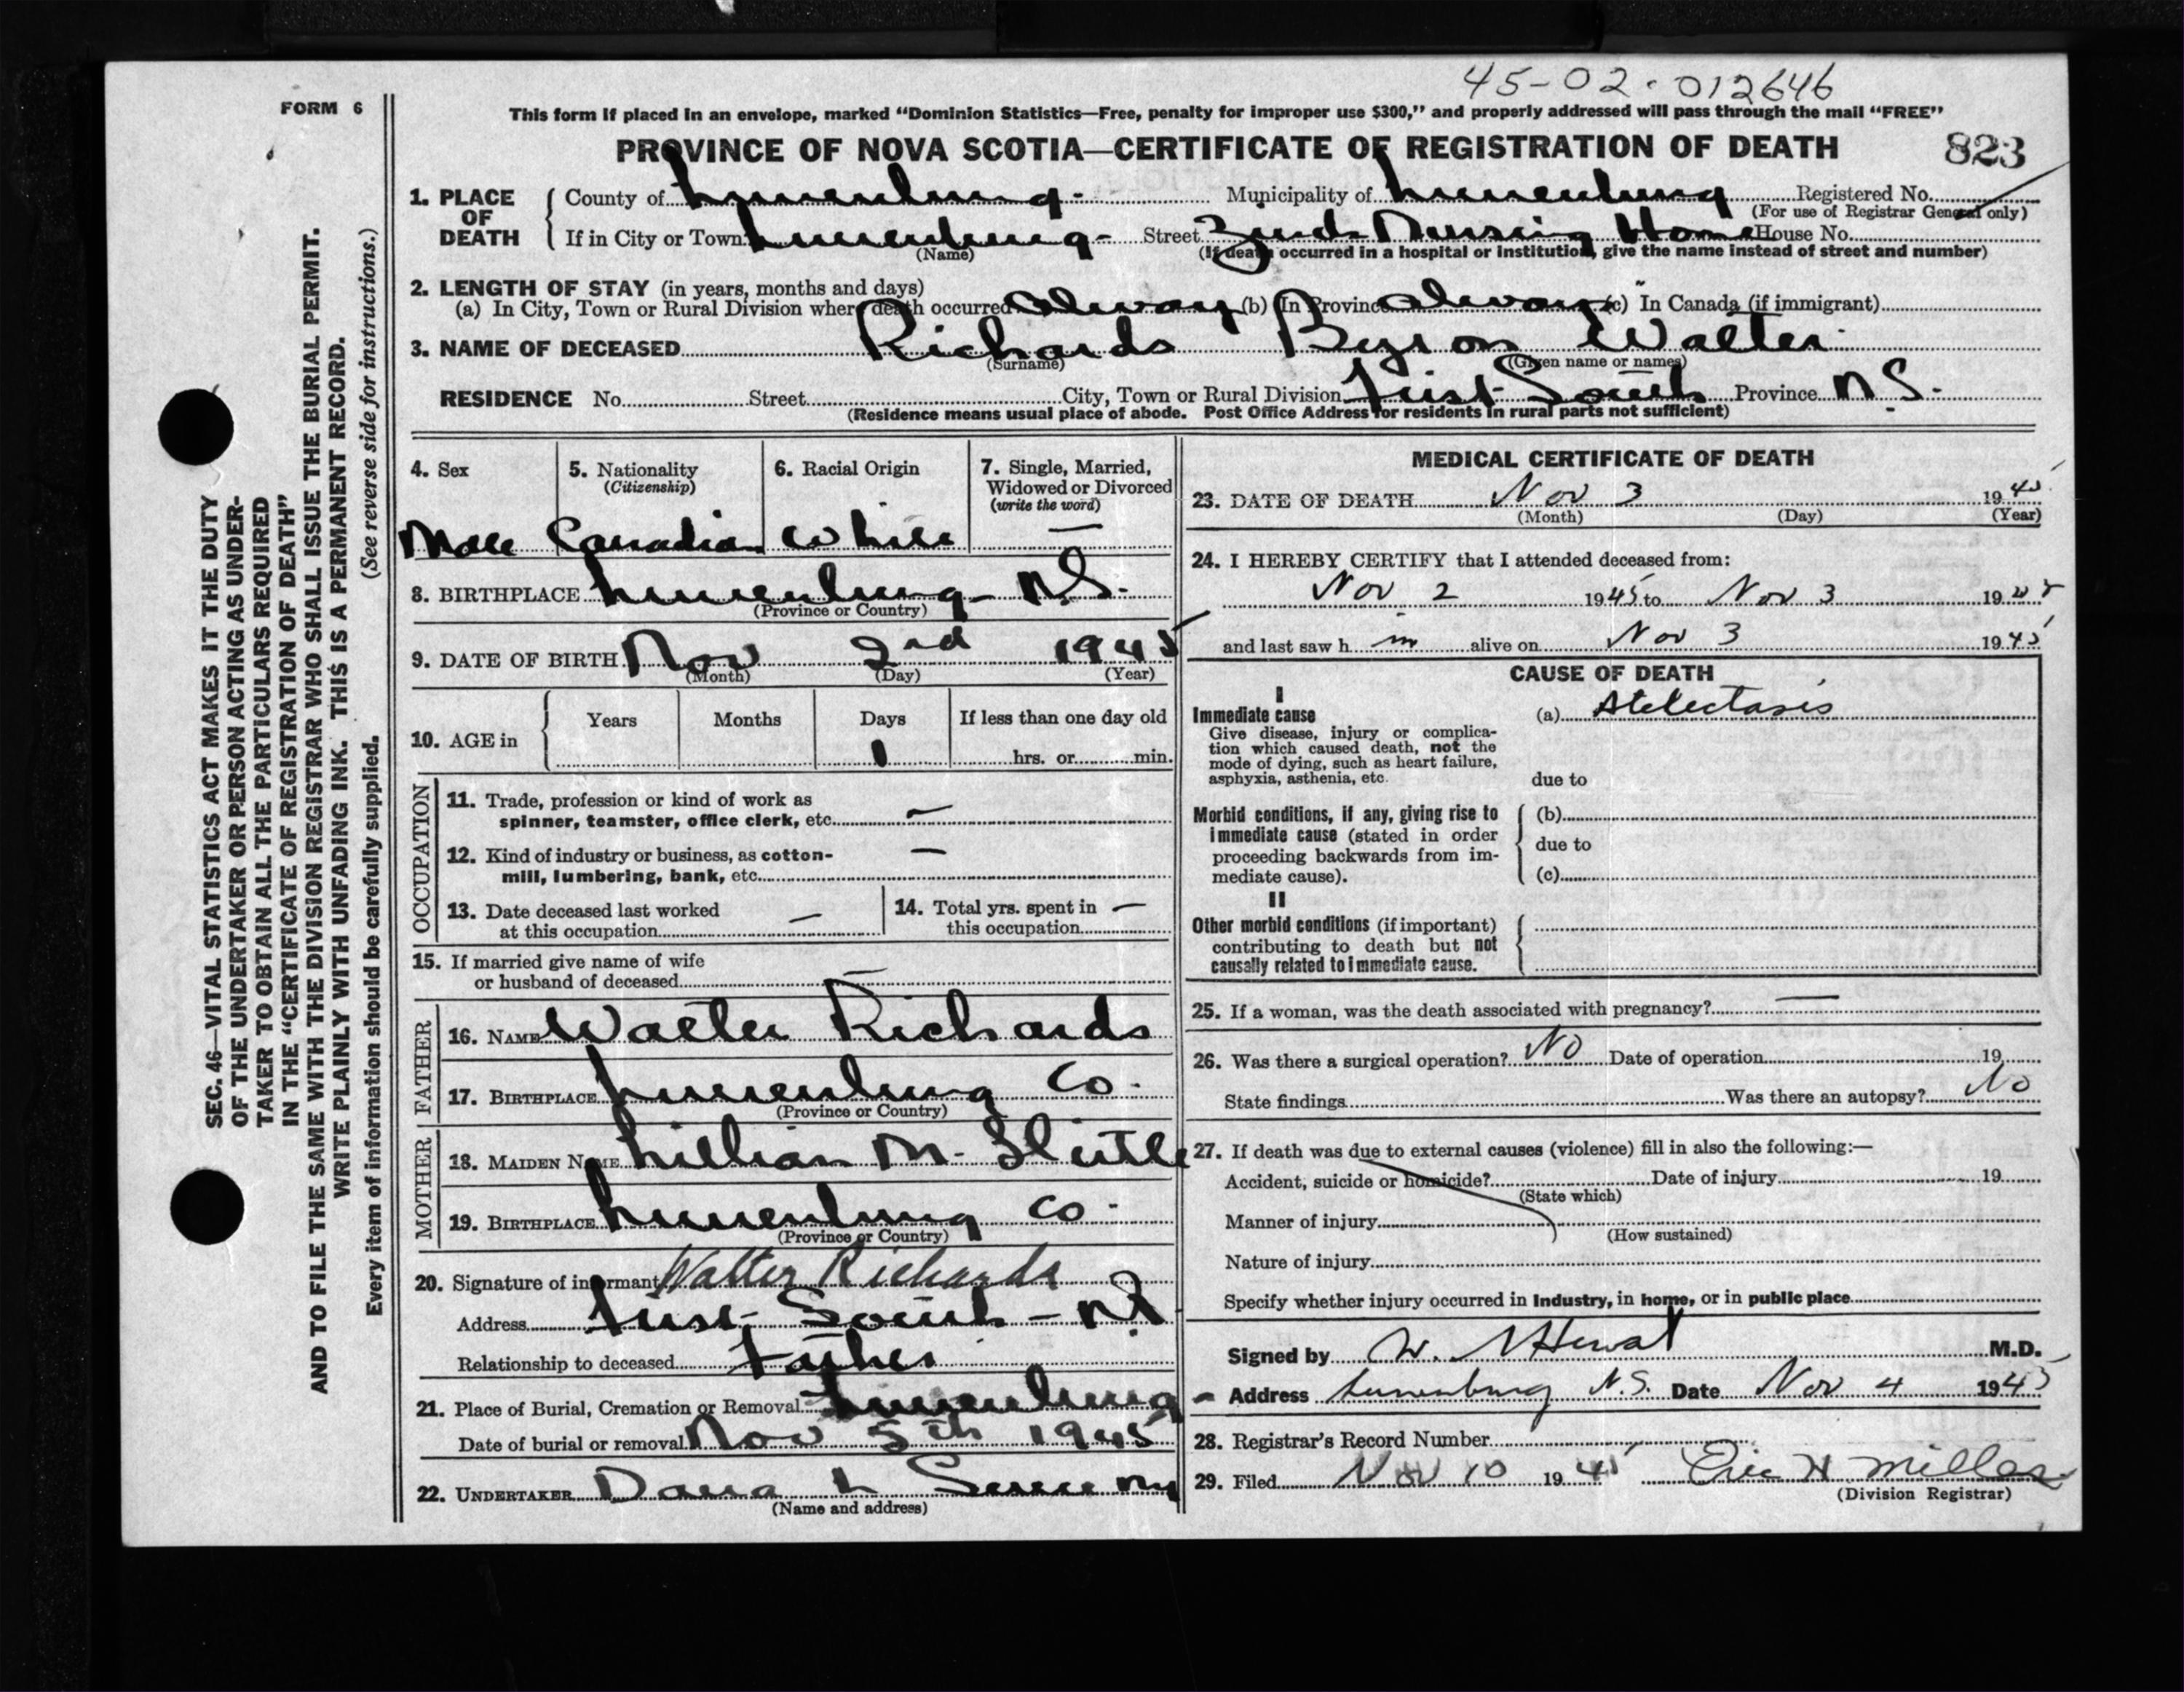 45-02-012646
FORM 6
This form if placed in an envelope, marked “Dominion Statistics—Free, penalty for improper use $300,” and properly addressed will pass through the mail “FREE”
PROVINCE OF NOVA SCOTIA—CERTIFICATE OF REGISTRATION OF DEATH 823
1. PLACE OF DEATH
County of Lunenburg Municipality of Lunenburg Registered No.
(For use of Registrar General only)
If in City or Town Lunenburg Street Nursing Home House No.
(Name) (If death occurred in a hospital or institution, give the name instead of street and number)
2. LENGTH OF STAY (in years, months and days)
(a) In City, Town or Rural Division where death occurred Always (b) In Province Always (c) In Canada (if immigrant)
3. NAME OF DECEASED Richards Byron Walter
(Surname) (Given name or names)
RESIDENCE No. Street City, Town or Rural Division First South Province N.S.
(Residence means usual place of abode. Post Office Address for residents in rural parts not sufficient)
4. Sex
Male
5. Nationality
(Citizenship)
Canadian
6. Racial Origin
White
7. Single, Married,
Widowed or Divorced
(write the word)
—
8. BIRTHPLACE Lunenburg N.S.
(Province or Country)
9. DATE OF BIRTH Nov 2nd 1945
(Month) (Day) (Year)
10. AGE in
Years Months Days If less than one day old
1 hrs. or min.
OCCUPATION
11. Trade, profession or kind of work as
spinner, teamster, office clerk, etc. —
12. Kind of industry or business, as cotton-
mill, lumbering, bank, etc. —
13. Date deceased last worked
at this occupation —
14. Total yrs. spent in
this occupation —
15. If married give name of wife
or husband of deceased —
FATHER
16. NAME Walter Richards
17. BIRTHPLACE Lunenburg Co.
(Province or Country)
MOTHER
18. MAIDEN NAME Lillian M.
19. BIRTHPLACE Lunenburg Co.
(Province or Country)
20. Signature of informant Walter Richards
Address First South - N.S.
Relationship to deceased Father
21. Place of Burial, Cremation or Removal Lunenburg
Date of burial or removal Nov 5th 1945
22. UNDERTAKER Dana L
(Name and address)
MEDICAL CERTIFICATE OF DEATH
23. DATE OF DEATH Nov 3 1945
(Month) (Day) (Year)
24. I HEREBY CERTIFY that I attended deceased from:
Nov 2 1945 to Nov 3 1945
and last saw h im alive on Nov 3 1945
CAUSE OF DEATH
I
Immediate cause
Give disease, injury or complica-
tion which caused death, not the
mode of dying, such as heart failure,
asphyxia, asthenia, etc.
(a) Atelectasis
due to
Morbid conditions, if any, giving rise to
immediate cause (stated in order
proceeding backwards from im-
mediate cause).
(b)
due to
(c)
II
Other morbid conditions (if important)
contributing to death but not
causally related to immediate cause.
25. If a woman, was the death associated with pregnancy? —
26. Was there a surgical operation? No Date of operation 19
State findings Was there an autopsy? No
27. If death was due to external causes (violence) fill in also the following:—
Accident, suicide or homicide? Date of injury 19
(State which)
Manner of injury
(How sustained)
Nature of injury
Specify whether injury occurred in Industry, in home, or in public place
Signed by W. M.D.
Address Lunenburg N.S. Date Nov 4 1945
28. Registrar's Record Number
29. Filed Nov 10 1945 Eric H Millar
(Division Registrar)
SEC. 46—VITAL STATISTICS ACT MAKES IT THE DUTY
OF THE UNDERTAKER OR PERSON ACTING AS UNDER-
TAKER TO OBTAIN ALL THE PARTICULARS REQUIRED
IN THE “CERTIFICATE OF REGISTRATION OF DEATH”
AND TO FILE THE SAME WITH THE DIVISION REGISTRAR WHO SHALL ISSUE THE BURIAL PERMIT.
WRITE PLAINLY WITH UNFADING INK. THIS IS A PERMANENT RECORD.
Every item of information should be carefully supplied. (See reverse side for instructions.)